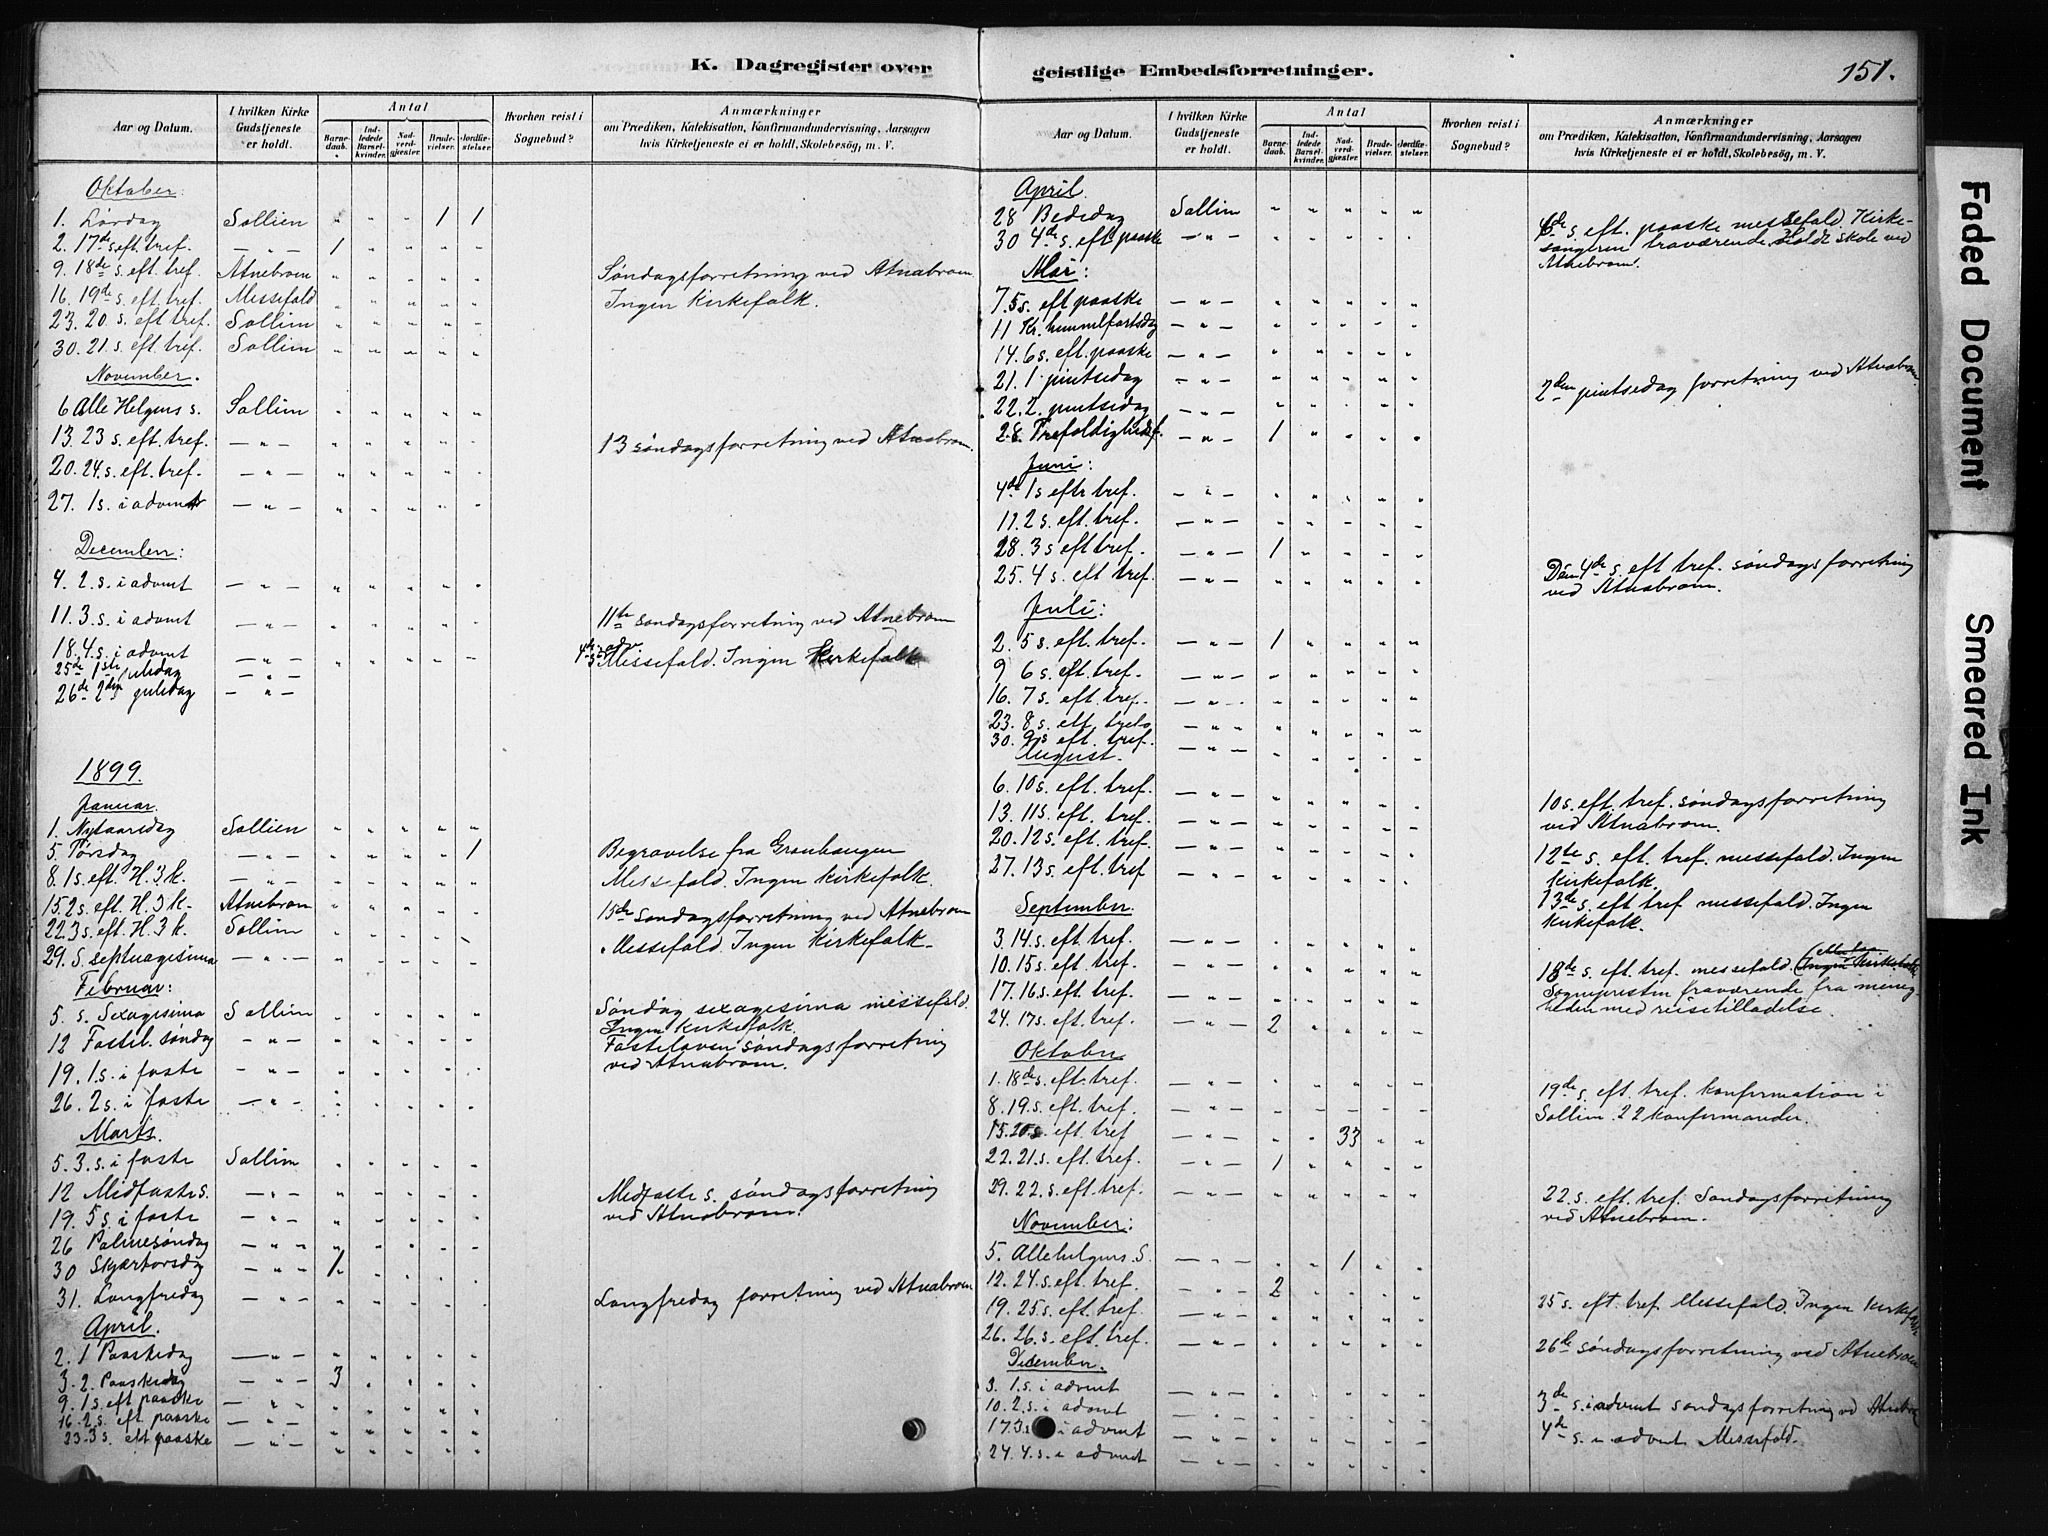 K. Dagregister over
Aar og Datum.
I hvilken Kirke Gudstjeneste er holdt.
Antal
Barnedaab.
Indledede Barselkvinder.
Nadverdgjæster.
Brudevielser.
Jordfæstelser.
Hvorhen reist i Sognebud?
Anmærkninger
om Prædiken, Katekisation, Konfirmandundervisning, Aarsagen
hvis Kirketjeneste ei er holdt, Skolebesög, m. V.
Oktober:
1. Lørdag Sollien " " " 1 1
2. 17de s. eft. tref. — " — 1
9. 18de s. eft. tref. Atnebroen " " " " " Søndagsforretning ved Atnabroen
16. 19de s. eft. tref. Messefald " " " " " Ingen Kirkefolk.
23. 20. s. eft tref. Sollien " " " " "
30. 21. s. eft. tref. Sollien " " " " "
November.
6 Alle Helgens s. Sollien " " " " "
13. 23 s. eft. tref. — " — " " " " " 13 søndagsforretning ved Atnabroen.
20. 24. s. eft. tref. — " — " " " " "
27. 1s. i advent — " — " " " " "
December:
4. 2. s. i advent — " — " " " " "
11. 3. s. i advent — " — " " " " " 11te søndagsforretning ved Atnebroen
18. 4. s. i advent — " — " " " " " Messefald. Ingen Kirkefolk
25de 1ste juledag — " —
26de 2den juledag — " —
1899.
Januar.
1. Nytaarsdag Sollien " " " " "
5. Torsdag — " — " " " " 1 Begravelse fra Grønhaugen
8. 1s. eft. H. 3 k. — " — " " " " " Messefald. Ingen Kirkefolk.
15. 2s. eft. H. 3 k. Atnebroen " " " " " 15de søndagsforretning ved Atnebroen
22. 3 s. eft. H. 3 k. Sollien " " " " " Messefald. Ingen Kirkefolk.
29. S. septuagesima — " — " " " " "
Februar:
5. s. Sexagesima Sollien " " " " " Søndag sexagesima messefald.
Ingen Kirkefolk.
12 Fastel. søndag — " — " " " " " Fastelaven søndagsforretning
ved Atnabroen.
19. 1. s. i faste — " — " " " " "
26. 2 s. i faste — " — " " " " "
Marts.
5. 3. s. i faste Sollien " " " " "
12 Midfaste s. — " — " " " " " Midfaste s. søndagsforretning
ved Atnabroen.
19. 5 s. i faste — " — " " " " "
26 Palmesøndag — " — " " " " "
30 Skjærtorsdag — " — 1 " " " "
31. Langfredag — " — " " " " " Langfredag forretning ved Atnabroen
April.
2. 1 Paaskedag — " — " " " " "
3. 2. Paaskedag — " — 3 " " " "
9. 1. s. eft paaske — " — " " " " "
16. 2 s. eft paaske — " — " " " " "
23. 3 s. eft paaske — " — " " " " "
geistlige Embedsforretninger.
151.
Aar og Datum.
I hvilken Kirke Gudstjeneste er holdt.
Antal
Barnedaab.
Indledede Barselkvinder.
Nadverdgjæster.
Brudevielser.
Jordfæstelser.
Hvorhen reist i Sognebud?
Anmærkninger
om Prædiken, Katekisation, Konfirmandundervisning, Aarsagen
hvis Kirketjeneste ei er holdt, Skolebesög, m. V.
April.
28 Bededag Sollien " " " " " s. eft. paaske messefald. Kirke-
30 4de s. eft paaske — " — " " " " " sangeren fraværende. Holdt skole ved
Atnebroen.
Mai:
7. 5s. eft paaske — " — " " " " "
11 Kr. himmelfartsdag — " — " " " " "
14. 6 s. eft. paaske — " — " " " " "
21. 1 pintsedag — " — " " " " " 2den pintsedag forretning ved Atnabroen.
22. 2. pintsedag — " — " " " " "
28. Trefoldighedsf. — " — 1 " " " "
Juni:
4de 1s eftr tref. — " — " " " " "
11. 2 s. eft. tref. — " — " " " " "
28. 3 s eft tref. — " — 1 " " " "
25. 4 s. eft tref. — " — " " " " " Den 4de s. eft tref. søndagsforretning
ved Atnabroen.
Juli:
2. 5 s. eft. tref. — " — 1 " " " "
9 6 s. eft. tref. — " — " " " " "
16. 7 s. eft. tref. — " — " " " " "
23. 8 s. eft. tref. — " — " " " " "
30. 9 s. eft. tref. — " — " " " " "
August.
6. 10 s. eft. tref. — " — " " " " " 10 s. eft. tref. søndagsforretning
ved Atnabroen.
13. 11 s. eft. tref. — " — " " " " "
20. 12 s. eft. tref. — " — " " " " " 12te s. eft. tref. messefald. Ingen
Kirkefolk.
27. 13 s. eft. tref — " — " " " " " 13de s. eft tref messefald. Ingen
Kirkefolk.
September.
3. 14. s. eft. tref. — " — " " " " "
10. 15 s. eft. tref. — " — " " " " " 18de s. eft. tref. messefald. Ingen Kirkefolk
17. 16 s. eft. tref. — " — " " " " " Sognepresten fraværende fra menig-
24. 17 s. eft. tref. — " — 2 " " " " heden med reisetilladelse.
Oktober
1. 18de s. eft. tref. — " — " " " " " 19de s. eft. tref. konfirmation i
8. 19. s. eft. tref. — " — " " " " " Sollien. 22 konfirmander.
15. 20 s. eft. tref — " — " " 33 " "
22. 21. s. eft. tref. — " — 1 " " " "
29. 22. s. eft. tref. — " — " " " " " 22. s. eft. tref. Søndagsforretning
ved Atnebroen.
November:
5. Allehelgens S. — " — " " 1 " "
12. 24. s. eft. tref. — " — 2 " " " "
19. 25 s. eft. tref. — " — " " " " " 25 s. eft. tref. Messefald. Ingen Kirkefolk
26. 26. s. eft. tref. — " — " " " " " 26de søndagsforretning ved Atnebroen
December.
3. 1. s. i advent — " — " " " " " 3de s. i advent søndagsforretning ved Atnebro
10. 2. s. i advent — " — " " " " " 4de s. i advent Messefald.
17. 3 s i advent — " — " " " " "
24. 4. s. i advent — " — " " " " "
Faded Document
Smeared Ink